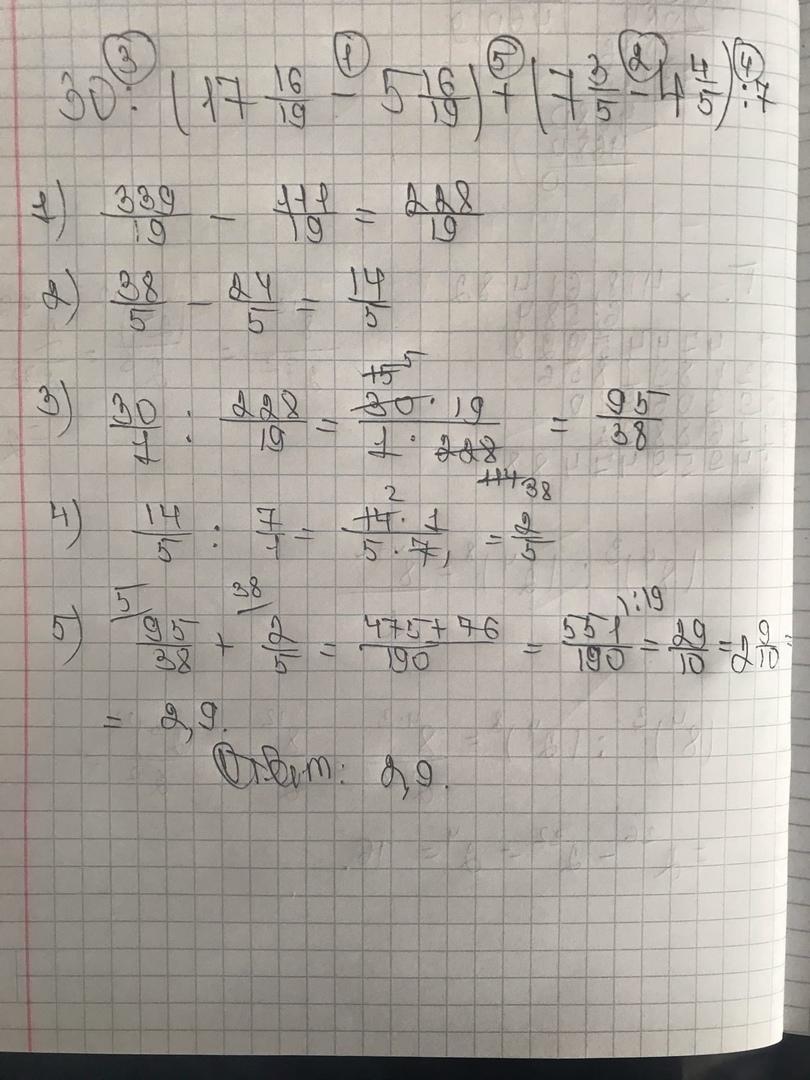 30 : (17 16/19 - 5 16/19) + (7 3/5 - 4 4/5) : 7
1) 339/19 - 111/19 = 228/19
2) 38/5 - 24/5 = 14/5
3) 30/1 : 228/19 = 30 · 19 / 1 · 228 = 95/38
4) 14/5 : 7/1 = 14 · 1 / 5 · 7 = 2/5
5) 95/38 + 2/5 = 475 + 76 / 190 = 551/190 = 29/10 = 2 9/10 =
= 2,9.
Ответ: 2,9.